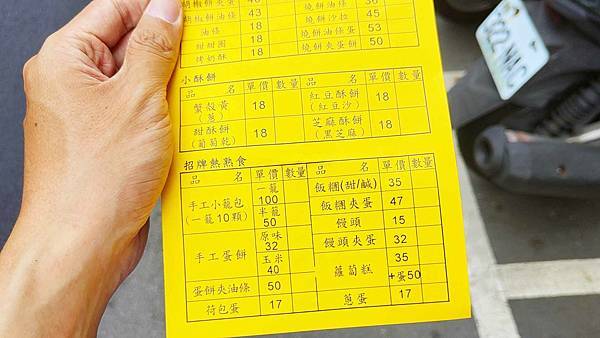 胡椒餅夾蛋
胡椒餅油條 43 燒餅沙拉 45
油條 18 燒餅油條蛋 53
甜甜圈 18 燒餅夾蛋餅 50
烤奶酥 18
小酥餅
品 名 單價 數量 品 名 單價 數量
蟹殼黃(蔥) 18 紅豆酥餅(紅豆沙) 18
甜酥餅(葡萄乾) 18 芝麻酥餅(黑芝麻) 18
招牌熱熟食
品 名 單價 數量 品 名 單價 數量
手工小籠包(一籠10顆) 一籠 100 飯糰(甜/鹹) 35
半籠 50 飯糰夾蛋 47
手工蛋餅 原味 32 饅頭 15
玉米 40 饅頭夾蛋 32
蛋餅夾油條 50 蘿蔔糕 35 +蛋50
荷包蛋 17 蔥蛋 17
322-NAC